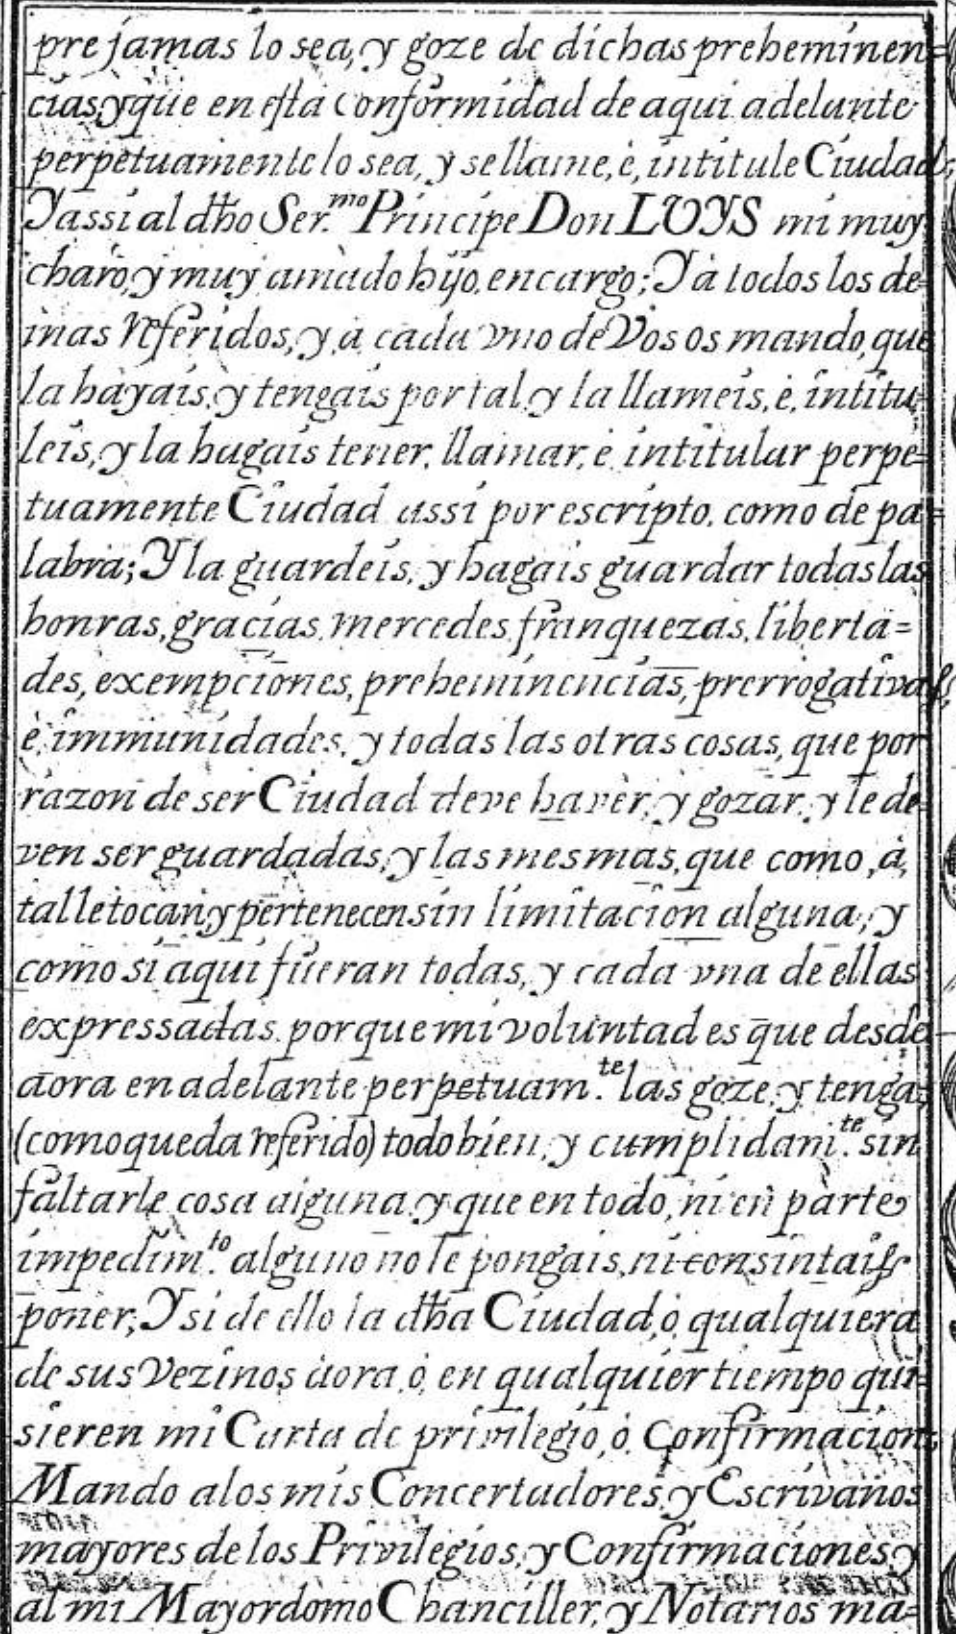 pre jamas lo sea, y goze de dichas preheminen=
cias, y que en esta conformidad de aqui adelante
perpetuamente lo sea, y se llame, è, intitule Ciudad,
Y assi al dho Ser.mo Principe Don LUYS mi muy
charo, y muy amado hijo, encargo; Y à todos los de=
mas referidos, y, à cada vno de Vos os mando, que
la hàyais, y tengais por tal, y la llameis, è, intitu=
leis, y la hagais tener, llamar, è intitular perpe=
tuamente Ciudad assi por escripto, como de pa=
labra; Y la guardeis, y hagais guardar todas las
honras, gracias, mercedes, franquezas, liberta=
des, exempciones, preheminencias, prerrogativas,
è, immunidades, y todas las otras cosas, que por
razon de ser Ciudad deve havèr, y gozàr, y le de=
ven ser guardadas, y las mesmas, que como, à,
tal le tocan, y pertenecen sin limitacion alguna, y
como si aqui fueran todas, y cada vna de ellas
expressadas, porque mi voluntad es que desde
aora en adelante perpetuam.te las goze, y tenga,
(como queda referido) todo bien, y cumplidam.te sin
faltarle cosa alguna, y que en todo, ni en parte
impedim.to alguno no le pongais, ni consintais
poner; Y si de ello la dha Ciudad, ò qualquiera
de sus Vezinos àora, ò, en qualquier tiempo qui=
sieren mi Carta de privilegio, ò Confirmacion;
Mando a los mis Concertadores, y Escrivanos
mayores de los Privilegios, y Confirmaciones, y
al mi Mayordomo Chanciller, y Notarios ma=